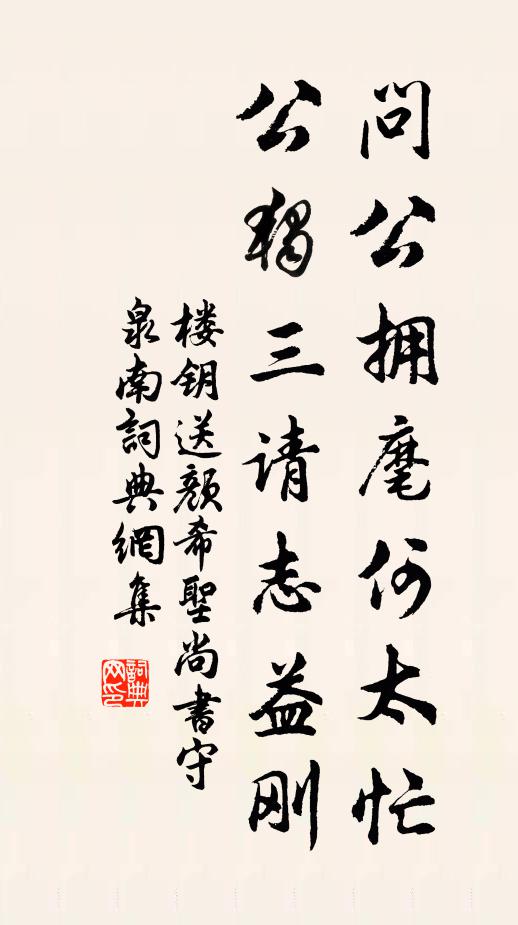 问公拥麾何太忙
公独三请志益刚
楼钥送颜希聖尚書守
泉南詞典網集
詞典网印